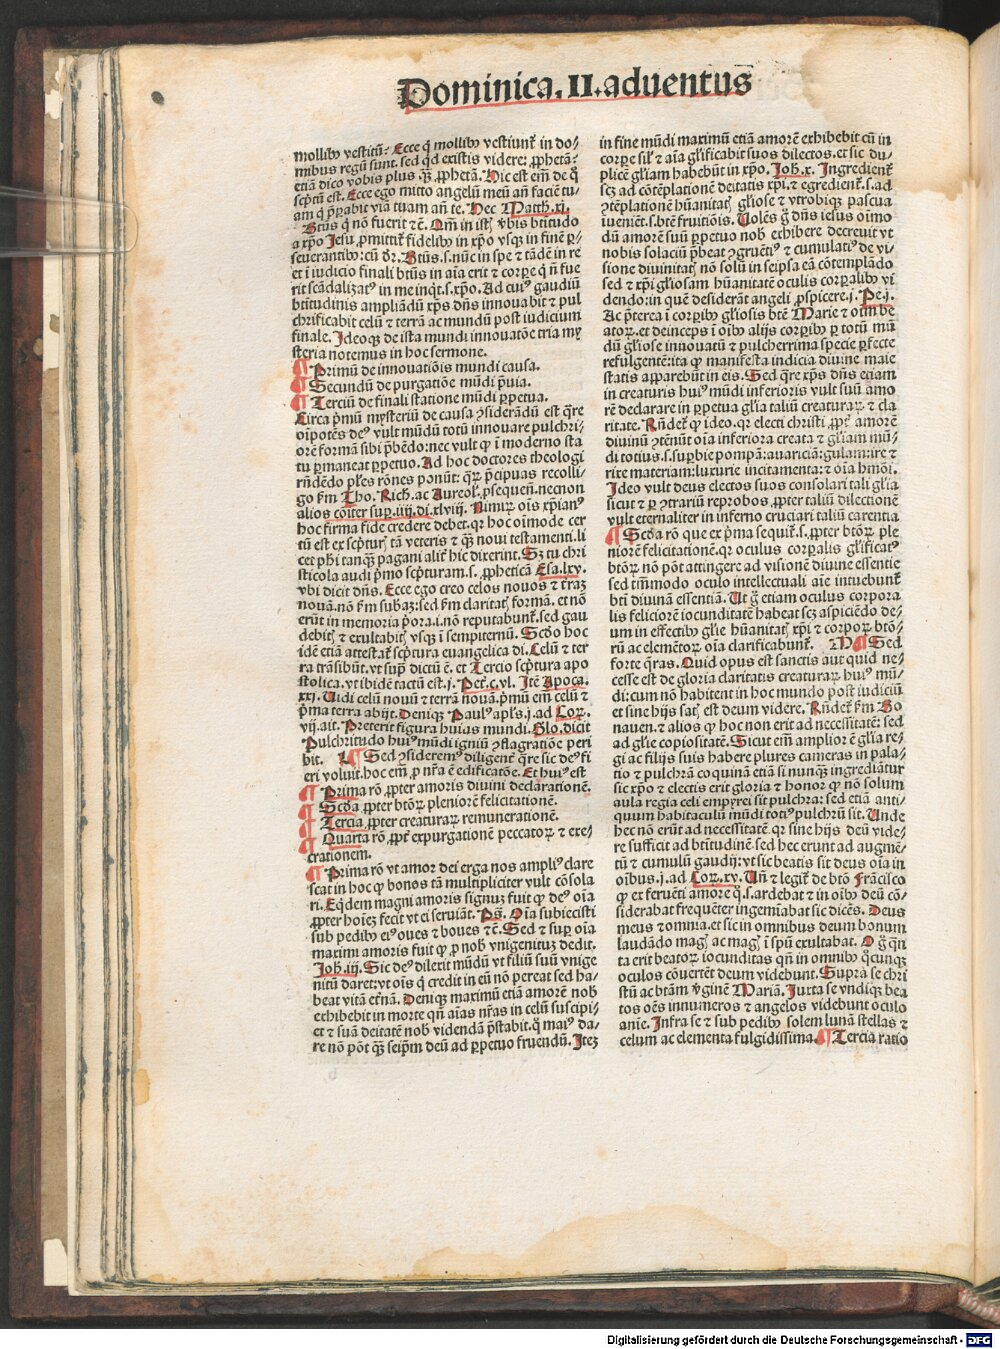 Dominica. II. aduentus
mollibꝰ vestitū? Ecce q̇ mollibꝰ vestiunt̃ in do-
mibus regū sunt. sed qd̓ existis videre: ꝓphetā?
etiā dico vobis plus qᷓꝫ ꝓphetā. Hic est em̄ de q̊
sc̓ptū est. Ecce ego mitto angelū meū añ faciē tu-
am q̇ p̄parabit viā tuam añ te. Hec Matth. xj.
Btūs q̇ nō fuerit ⁊c̄. Qm̄ in istꝭ v̓bis btitudo
a xp̄o Jesu ꝓmittit̃ fidelibꝰ in xp̄o vsqꝫ in finē ꝑ-
seuerantibꝰ: cū dr̄. Btūs. s. nūc in spe ⁊ tādē in re
et ī iudicio finali btūs in aīa erit ⁊ corꝑe q̇ ñ fue
rit scādalizatꝰ in me inqt̄. s. xp̄o. Ad cuiꝰ gaudiū
btitudinis ampliādū xp̄s dn̄s innouabit ⁊ pul
chrificabit celū ⁊ terrā ac mundū post iudicium
finale. Ideoqꝫ de ista mundi innouatōe tria my
steria notemus in hoc sermone.
¶ Primū de innouatiōis mundi causa.
¶ Secundū de purgatiōe mūdi p̄uia.
¶ Terciū de finali statione mūdi ꝑpetua.
Circa p̄mū mysteriū de causa ↄsiderādū est qᷓre
oīpotēs deꝰ vult mūdū totū innouare pulchri-
orē formā sibi p̄bēdo: nec vult ꝙ ī moderno sta
tu ꝑmaneat ꝑpetuo. Ad hoc doctores theologi
rn̄dēdo pl̓es rōnes ponūt: qᷓꝝ p̄cipuas recolli-
go ẜm Tho. Rich. ac Aureol. ꝓsequeñ. necnon
alios cōiter suꝑ. iiij. di. xlviij. Nimiꝝ oīs xp̄ianꝰ
hoc firma fide credere debet. qꝛ hoc oīmode cer
tū est ex sc̓pturꝭ tā veteris ⁊ qᷓꝫ noui testamenti. li
cet ph̓i tanqᷓꝫ pagani alit̓ hic dixerint. Sꝫ tu chri
sticola audi p̄mo sc̓pturam. s. ꝓpheticā Esa. lxv.
vbi dicit dn̄s. Ecce ego creo celos nouos ⁊ t̓raꝫ
nouā. nō ẜm subaꝫ: sed ẜm claritatꝭ formā. et nō
erūt in memoria p̄ora. i. nō reputabunt̃. sed gau
debitꝭ ⁊ exultabitꝭ vsqꝫ ī sempiternū. Scd̓o hoc
idē etiā attestat̃ sc̓ptura euangelica di. Celū ⁊ ter
ra trāsibūt. vt supᷓ dictū ē. et Tercio sc̓ptura apo
stolica. vt ibidē tactū est. j. Pet̓. c. vl. Itē Apoca.
xxj. Uidi celū nouū ⁊ terrā nouā. p̄mū em̄ celū ⁊
p̄ma terra abijt. Deniqꝫ Paulꝰ apl̓s. j. ad Coꝝ.
vij. ait. Preterit figura huius mundi. Glo. dicit
Pulchritudo huiꝰ mūdi igniū ↄflagratiōe peri
bit. ¶ Sed ↄsideremꝰ diligent̓ qᷓre sic deꝰ fi
eri voluit. hoc em̄ ꝓ nr̄a ē edificatōe. Et huiꝰ est
¶ Prima rō ꝓpter amoris diuini declarationē.
¶ Scd̓a ꝓpter btōꝝ pleniorē felicitationē.
¶ Tercia ꝓpter creaturaꝝ remunerationē.
¶ Quarta rō ꝓpt̓ expurgationē peccatoꝝ ⁊ exe-
crationem.
¶ Prima rō vt amor dei erga nos ampliꝰ clare
scat in hoc ꝙ bonos tā multipliciter vult cōsola
ri. Eqdem magni amoris signuꝫ fuit ꝙ deꝰ oīa
ꝓpter hoīeꝫ fecit vt ei seruiāt. Ps̄. Oīa subiecisti
sub pedibꝰ eiꝰ oues ⁊ boues ⁊c̄. Sed ⁊ suꝑ oīa
maximi amoris fuit ꝙ ꝓ nob̓ vnigenituꝫ dedit.
Joh̓. iij. Sic deꝰ dilexit mūdū vt filiū suū vnige
nitū daret: vt oīs q̇ credit in eū nō pereat sed ha-
beat vitā et̓nā. Deniqꝫ maximū etiā amorē nob̓
exhibebit in morte qñ aīas nr̄as in celū suscipi-
et ⁊ suā deitatē nob̓ videndā p̄stabit. q̊ maiꝰ da-
re nō pōt qᷓꝫ seip̄m deū ad ꝑpetuo fruendū. Iteꝫ
in fine mūdi maximū etiā amorē exhibebit cū in
corꝑe sil̓ ⁊ aīa gl̓ificabit suos dilectos. et sic du-
plicē gl̓iam habebūt in xp̄o. Joh̓. x. Ingredient̃
scꝫ ad cōtēplationē deitatis xp̄i. ⁊ egredient̃. s. ad
ↄtēplationē hūanitatꝭ gl̓iose ⁊ vtrobiqꝫ pascua
iueniēt. s. btē fruitiōis. Uolēs g̊ dn̄s iesus oīmo
dū amorē suū ꝑpetuo nob̓ exhibere decreuit vt
nobis solaciū p̄beat ↄgruētiꝰ ⁊ cumulatiꝰ de vi-
sione diuinitatꝭ nō solū in seipsa eā cōtemplādo
sed ⁊ xp̄i gl̓iosam hūanitatē oculis corꝑalibꝰ vi
dendo: in quē desiderāt angeli ꝓspicere. j. Pe. j.
Ac p̄terea ī corꝑibꝰ gl̓iosis btē Marie ⁊ oīm be
atoꝝ. et deinceps ī oībꝰ alijs corꝑibꝰ ꝑ totū mū
dū gl̓iose innouatū ⁊ pulcherrima specie ꝑfecte
refulgentē: ita ꝙ manifesta indicia diuine maie
statis apparebūt in eis. Sed qᷓre xp̄s dn̄s etiam
in creaturis huiꝰ mūdi inferioris vult suū amo
rē declarare in ꝑpetua gl̓ia taliū creaturaꝝ ⁊ cla
ritate. Rn̄det̃ ꝙ ideo. qꝛ electi christi ꝓpt̓ amorē
diuinū ↄtēnūt oīa inferiora creata ⁊ gl̓iam mū-
di totius. s. suꝑbie pompā: auariciā: gulam: ire ⁊
rixe materiam: luxurie incitamenta: ⁊ oīa hm̄oī.
Ideo vult deus electos suos consolari tali gl̓ia
sicut ⁊ ꝑ ↄtrariū reprobos ꝓpter taliū dilectionē
vult eternaliter in inferno cruciari taliū carentia
¶ Scd̓a rō que ex p̄ma sequit̃. s. ꝓpter btōꝝ ple
niorē felicitationē. qꝛ oculus corꝑalis gl̓ificatꝰ
btōꝝ nō pōt attingere ad visionē diuine essentie
sed tm̄modo oculo intellectuali aīe intuebunt̃
bti diuinā essentiā. Ut g̊ etiam oculus corpora
lis feliciorē iocunditatē habeat scꝫ aspiciēdo de-
um in effectibꝰ gl̓ie hūanitatꝭ xp̄i ⁊ corpoꝝ btō-
rū ac elemētoꝝ oīa clarificabunt̃. ¶ Sed
forte q̄ras. Quid opus est sanctis aut quid ne-
cesse est de gloria claritatis creaturaꝝ huiꝰ mū-
di: cum nō habitent in hoc mundo post iudiciū
et sine hijs satꝭ est deum videre. Rn̄det̃ ẜm Bo
nauen. ⁊ alios ꝙ hoc non erit ad necessitatē: sed
ad gl̓ie copiositatē. Sicut em̄ ampliorē gl̓ia re-
gi ac filijs suis habere plures cameras in pala-
tio ⁊ pulchrā coquinā etiā si nunqᷓꝫ ingrediātur
sic xp̄o ⁊ electis erit gloria ⁊ honor ꝙ nō solum
aula regia celi empyrei sit pulchra: sed etiā anti-
quum habitaculū mūdi totiꝰ pulchrū sit. Unde
hec nō erūt ad necessitatē. qꝛ sine hijs deū vide-
re sufficit ad btitudinē. sed hec erunt ad augmē-
tū ⁊ cumulū gaudij: vt sic beatis sit deus oīa in
oībus. j. ad Coꝝ. xv. Uñ ⁊ legit̃ de bto Frācisco
ꝙ ex feruēti amore q̊. s. ardebat ⁊ in oībꝰ deū cō-
siderabat frequēter ingemiabat sic dicēs. Deus
meus ⁊ omnia. et sic in omnibus deum bonum
laudādo magꝭ ac magꝭ ī spū exultabat. O g̊ qn̄
ta erit beatoꝝ iocunditas qñ in omnibꝰ q̊cunqꝫ
oculos cōuertēt deum videbunt. Supra se chri
stū ac btām v̓ginē Mariā. Iuxta se vndiqꝫ bea
tos oēs innumeros ⁊ angelos videbunt oculo
anie. Infra se ⁊ sub pedibꝰ solem lunā stellas ⁊
celum ac elementa fulgidissima. ¶ Tercia ratio
Digitalisierung gefördert durch die Deutsche Forschungsgemeinschaft - DFG